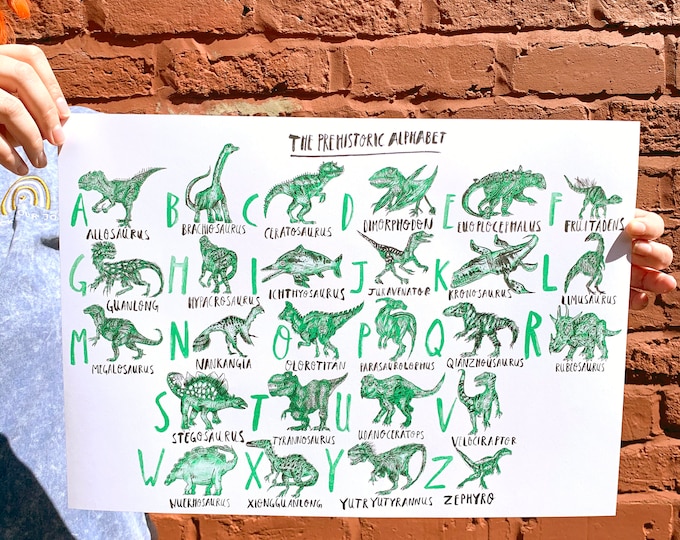 THE PREHISTORIC ALPHABET
A B C D E F
ALLOSAURUS BRACHIOSAURUS CERATOSAURUS DIMORPHODON EUOPLOCEPHALUS FRUITADENS
G H I J K L
GUANLONG HYPACROSAURUS ICHTHYOSAURUS JURAVENATOR KRONOSAURUS LIMUSAURUS
M N O P Q R
MEGALOSAURUS NANKANGIA OLOROTITAN PARASAUROLOPHUS QIANZHOUSAURUS RUBEOSAURUS
S T U V
STEGOSAURUS TYRANNOSAURUS UDANOCERATOPS VELOCIRAPTOR
W X Y Z
WUERHOSAURUS XIONGGUANLONG YUTRYUTYRANNUS ZEPHYRO